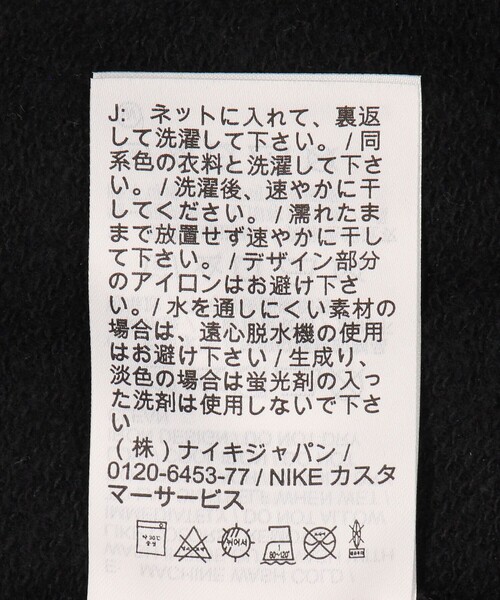 J: ネットに入れて、裏返
して洗濯して下さい。 / 同
系色の衣料と洗濯して下さ
い。/ 洗濯後、速やかに干
してください。 / 濡れたま
まで放置せず速やかに干し
て下さい。 / デザイン部分
のアイロンはお避け下さ
い。/ 水を通しにくい素材の
場合は、遠心脱水機の使用
はお避け下さい / 生成り、
淡色の場合は蛍光剤の入っ
た洗剤は使用しないで下さ
い
(株) ナイキジャパン /
0120-6453-77 / NIKE カスタ
マーサービス
80~120°